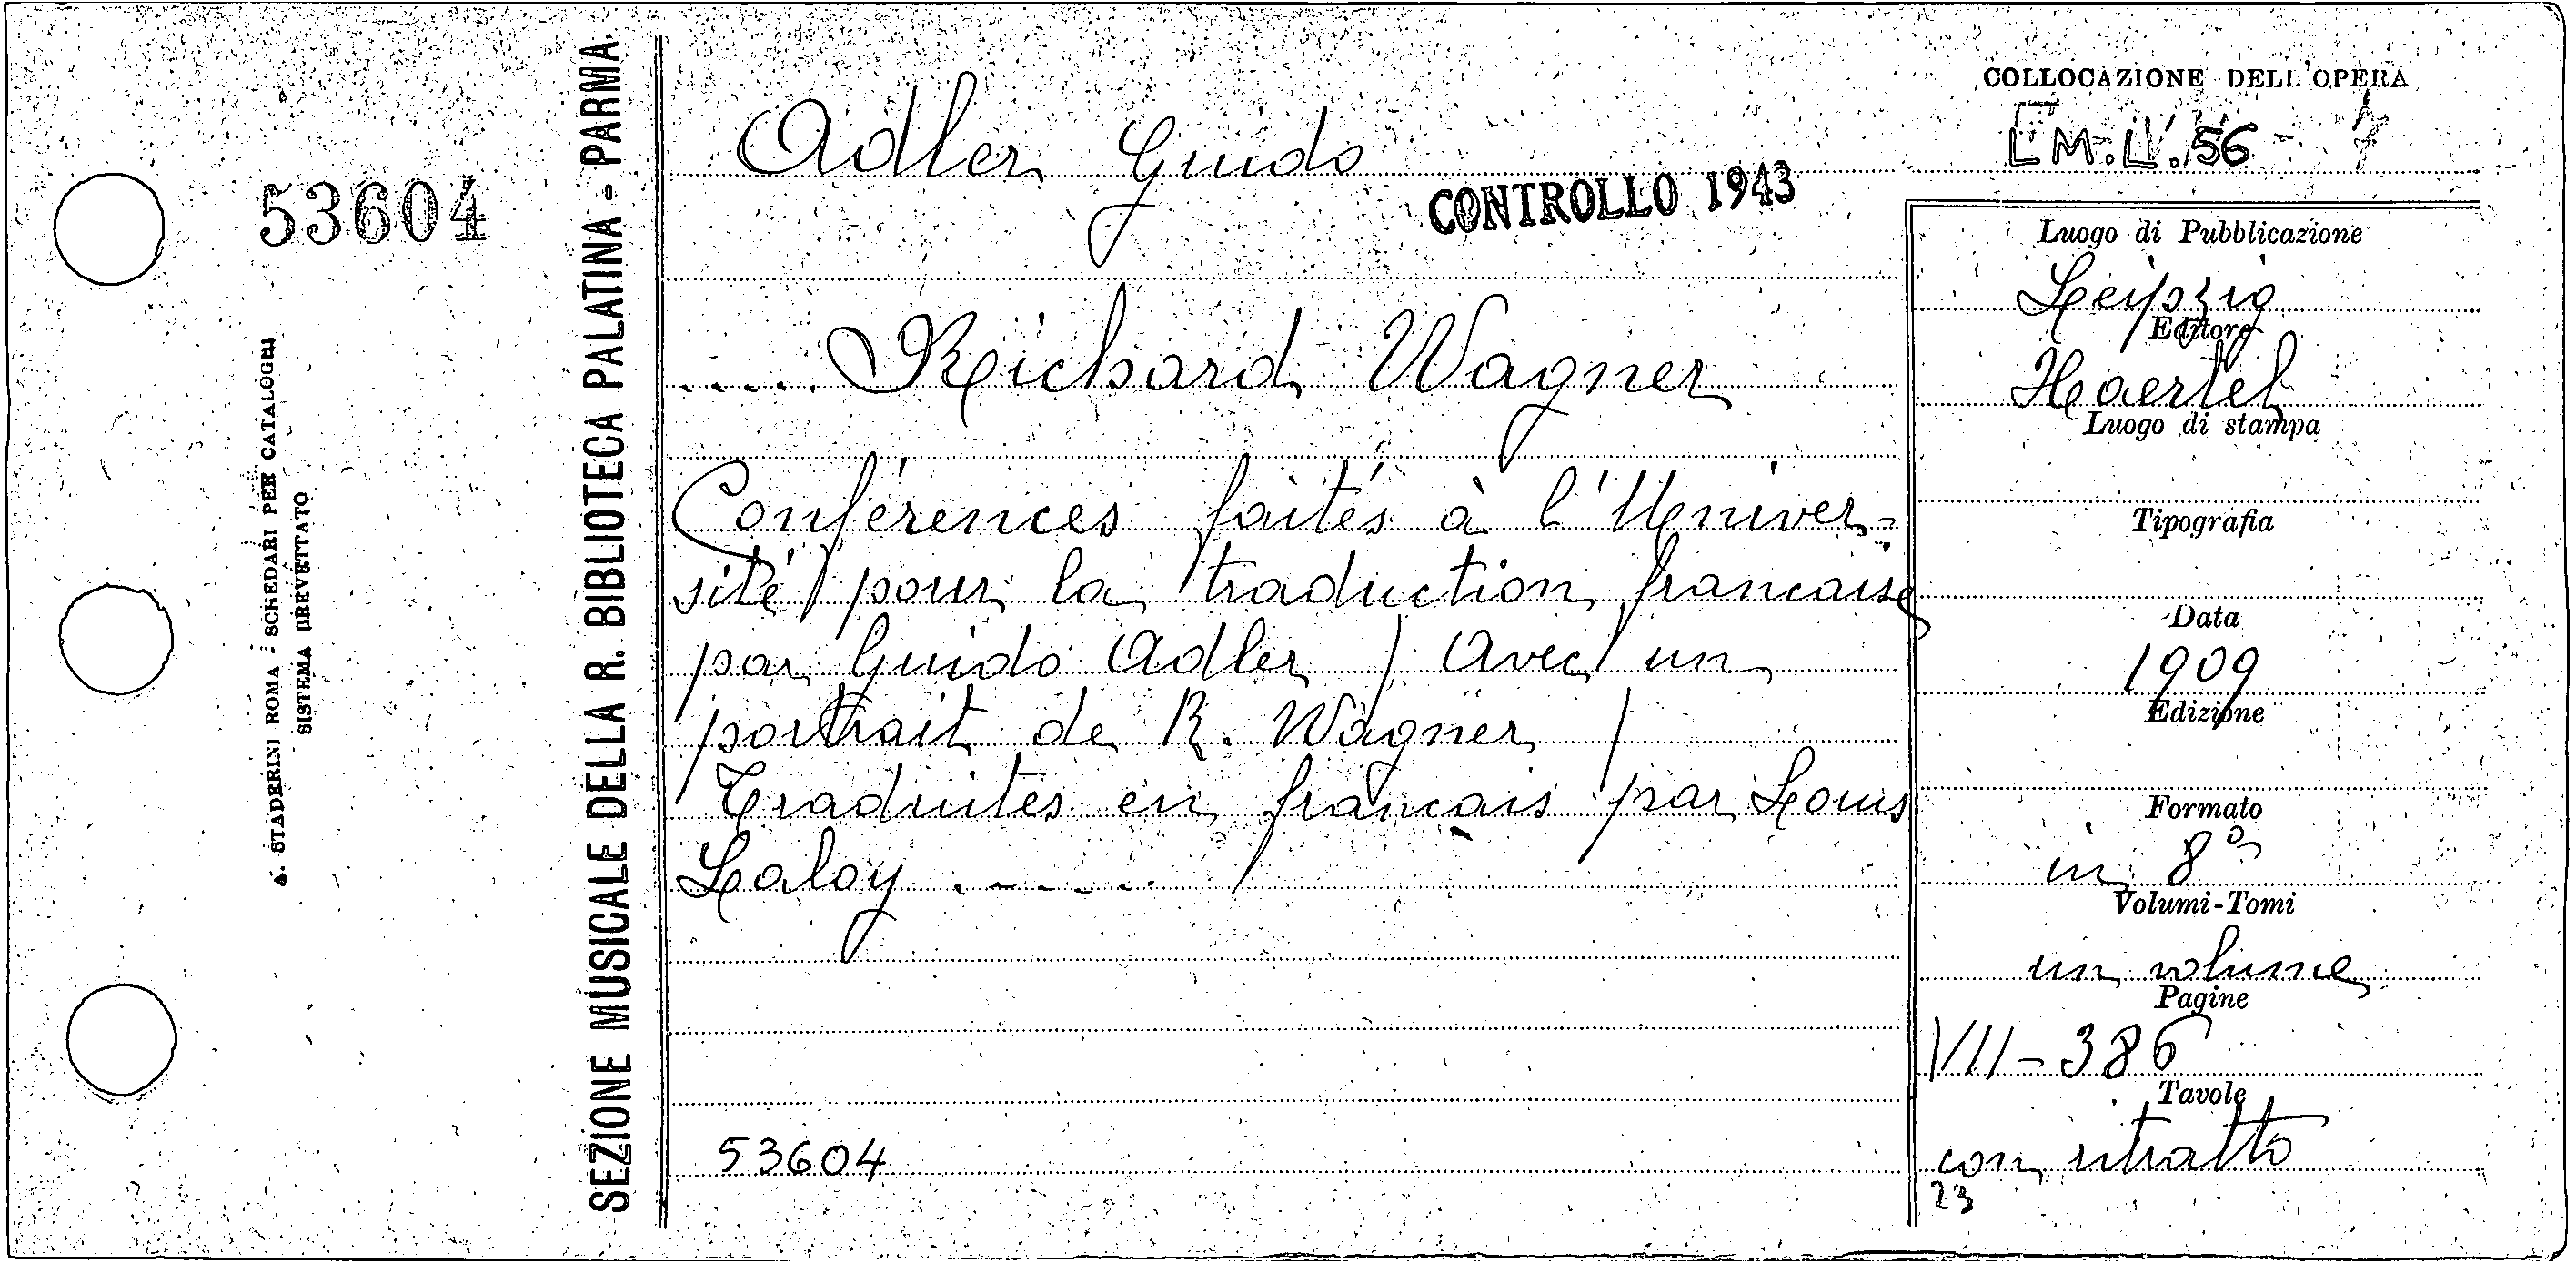 53604
A. STADERINI ROMA - SCHEDARI PER CATALOGHI
SISTEMA BREVETTATO
SEZIONE MUSICALE DELLA R. BIBLIOTECA PALATINA - PARMA
Adler Guido
CONTROLLO 1943
..... Richard Wagner
Conférences faites à l'Univer-
sité / pour la traduction francaise
par Guido Adler / Avec un
portrait de R. Wagner /
Traduites en francais par Louis
Laloy .....
53604
COLLOCAZIONE DELL'OPERA
M.L. 56 - 7
Luogo di Pubblicazione
Leipzig
Editore
Haertel
Luogo di stampa
Tipografia
Data
1909
Edizione
Formato
in 8°
Volumi-Tomi
un volume
Pagine
VII-386
Tavole
con ritratto
23